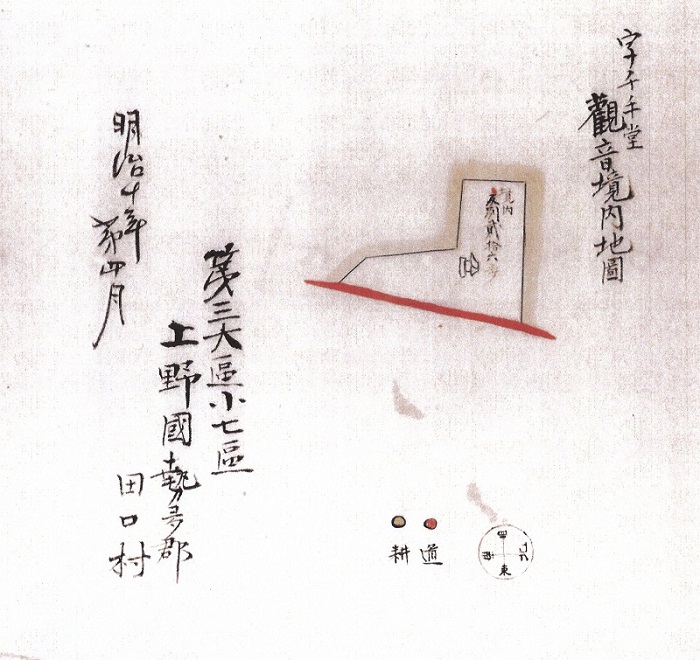 字千手堂
觀音境内地圖
境内
反別貳拾六歩
第三大區小七區
上野國勢多郡
田口村
明治十年
第四月
道
耕
西
北
東
南